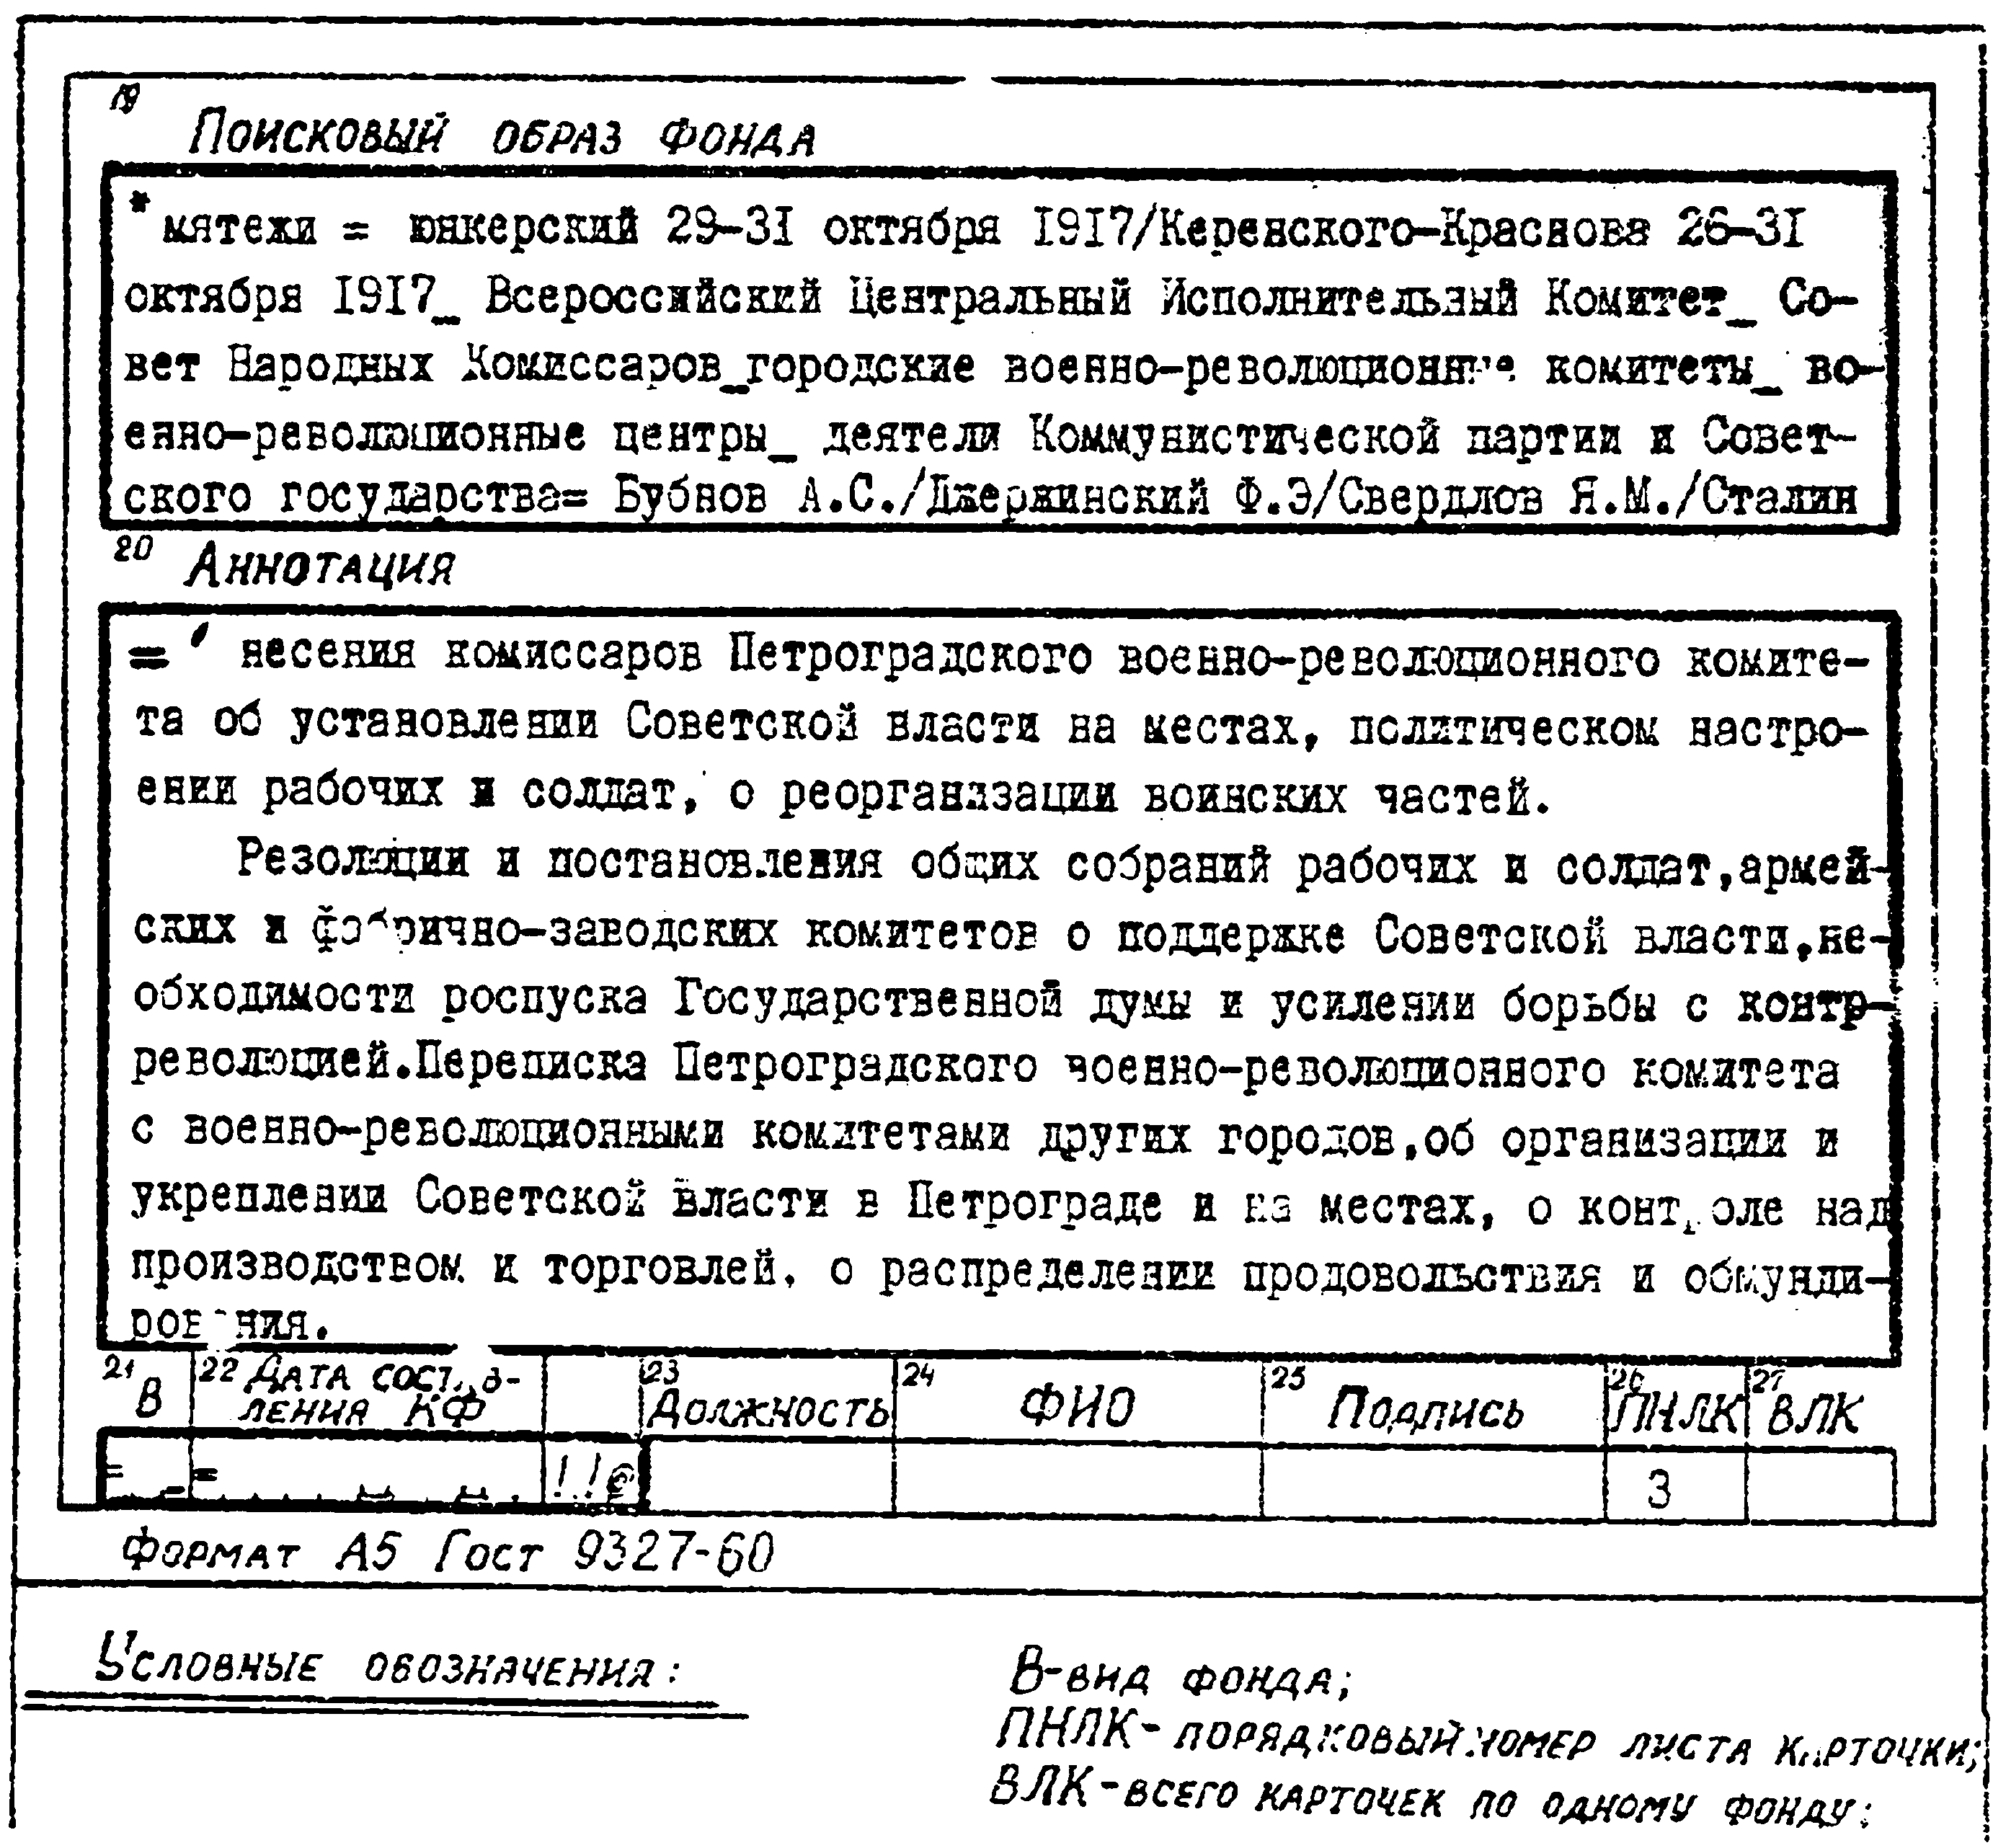 19
Поисковый образ фонда
* мятежи = юнкерский 29-31 октября 1917/Керенского-Краснова 26-31
октября 1917_ Всероссийский Центральный Исполнительный Комитет_ Со-
вет Народных Комиссаров_городские военно-революционные комитеты_ во-
енно-революционные центры_ деятели Коммунистической партии и Совет-
ского государства= Бубнов А.С./Дзержинский Ф.Э/Свердлов Я.М./Сталин
20 Аннотация
= несения комиссаров Петроградского военно-революционного комите-
та об установлении Советской власти на местах, политическом настро-
ении рабочих и солдат, о реорганизации воинских частей.
Резолюции и постановления общих собраний рабочих и солдат,армей-
ских и фабрично-заводских комитетов о поддержке Советской власти,не-
обходимости роспуска Государственной думы и усилении борьбы с контр-
революцией.Переписка Петроградского военно-революционного комитета
с военно-революционными комитетами других городов,об организации и
укреплении Советской власти в Петрограде и на местах, о контроле над
производством и торговлей, о распределении продовольствия и обмунди-
рования.
21 В 22 Дата состав- 23 Должность 24 ФИО 25 Подпись 26 ПНЛК 27 ВЛК
ления КФ
= = !!@ 3
Формат А5 Гост 9327-60
Условные обозначения:
В-вид фонда;
ПНЛК- порядковый номер листа карточки;
ВЛК-всего карточек по одному фонду: